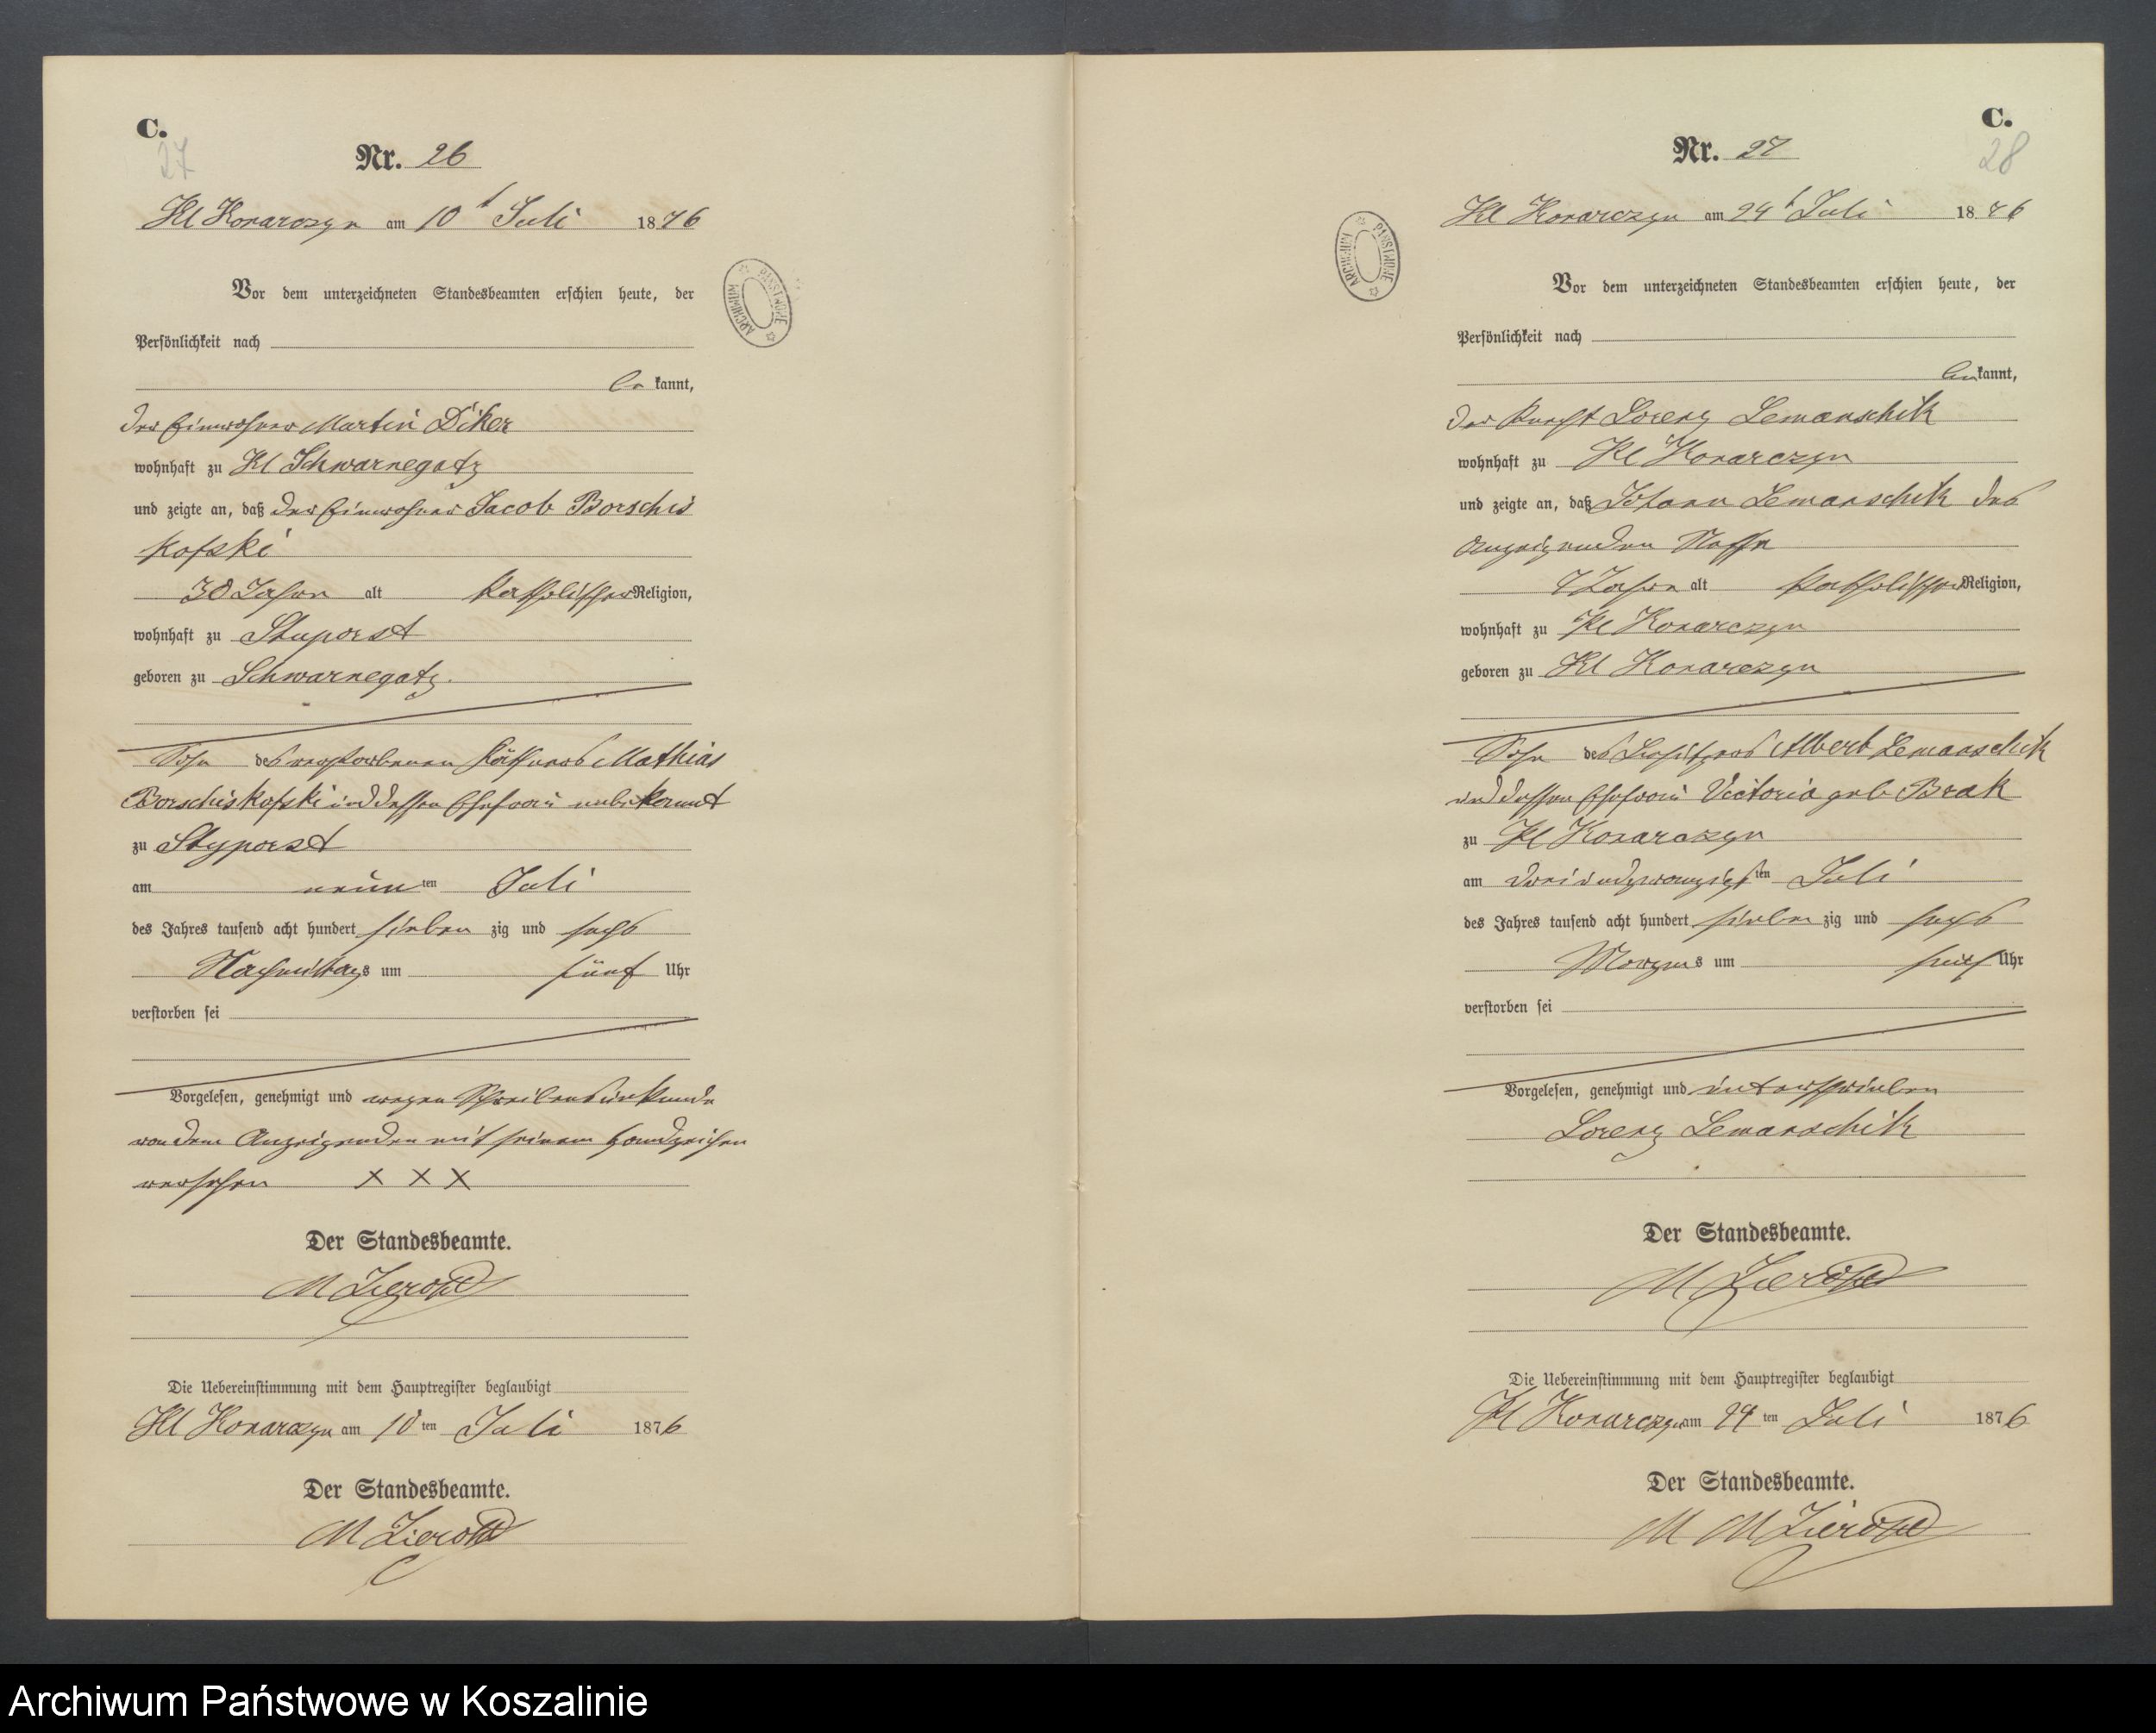 C.
27
Nr. 26
Kl Konarczyn am 10t Juli 1876
Vor dem unterzeichneten Standesbeamten erschien heute, der
Persönlichkeit nach
be kannt,
der Einwohner Martin Diker
wohnhaft zu Kl Schwarnegatz
und zeigte an, daß der Einwohner Jacob Borschis
kofski
38 Jahre alt katholischer Religion,
wohnhaft zu Stuporst
geboren zu Schwarnegatz.
Sohn des verstorbenen Käthners Mathias
Borschiskofski und dessen Ehefrau unbekannt
zu Styporst
am neun ten Juli
des Jahres tausend acht hundert sieben zig und sechs
Nachmittags um fünf Uhr
verstorben sei
Vorgelesen, genehmigt und wegen Schreibensunkunde
von dem Anzeigenden mit seinem Handzeichen
versehen X X X
Der Standesbeamte.
M
Die Uebereinstimmung mit dem Hauptregister beglaubigt
Kl Konarczyn am 10 ten Juli 1876
Der Standesbeamte.
M
ARCHIWUM PAŃSTWOWE
C.
28
Nr. 27
Kl Konarczyn am 24t Juli 1876
Vor dem unterzeichneten Standesbeamten erschien heute, der
Persönlichkeit nach
be kannt,
der Knecht Lorenz Lemanschik
wohnhaft zu Kl Konarczyn
und zeigte an, daß Johann Lemanschik des
Anzeigenden Neffe
Jahre alt katholischer Religion,
wohnhaft zu Kl Konarczyn
geboren zu Kl Konarczyn
Sohn des Besitzers Albert Lemanschik
und dessen Ehefrau Victoria geb Brak
zu Kl Konarczyn
am dreiundzwanzigsten Juli
des Jahres tausend acht hundert sieben zig und sechs
Morgens um Uhr
verstorben sei
Vorgelesen, genehmigt und unterschrieben
Lorenz Lemanschik
Der Standesbeamte.
M
Die Uebereinstimmung mit dem Hauptregister beglaubigt
Kl Konarczyn am 24 ten Juli 1876
Der Standesbeamte.
M M
ARCHIWUM PAŃSTWOWE
Archiwum Państwowe w Koszalinie